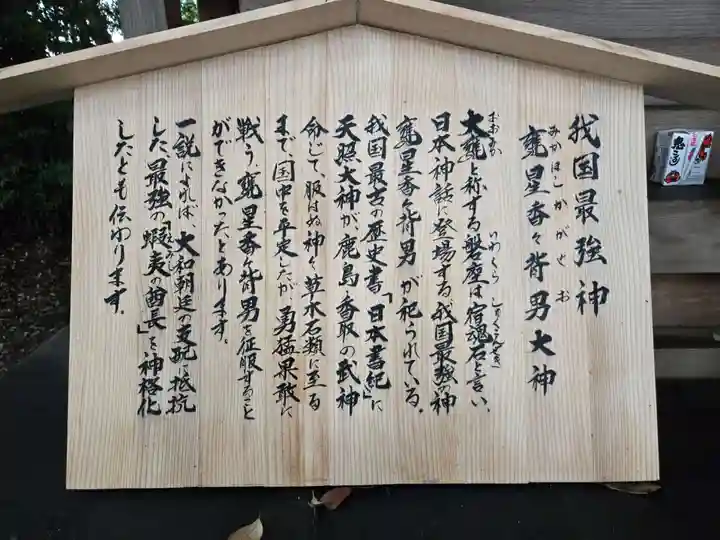 我国最強神
みかほしかがせお
甕星香々背男大神
おおみか
大甕と称する磐座は宿魂石と言い、
いわくら しゅくこんせき
日本神話に登場する我国最強の神
甕星香々背男が祀られている。
我国最古の歴史書「日本書紀」に
天照大神が、鹿島・香取の武神に
命じて、服はぬ神々、草木石類に至る
まで、国中を平定したが、勇猛果敢に
戦う、甕星香々背男を征服すること
ができなかったとあります。
一説によれば、大和朝廷の支配に抵抗
した、最強の「蝦夷の酋長」を神格化
したとも伝わります。
鬼ころし